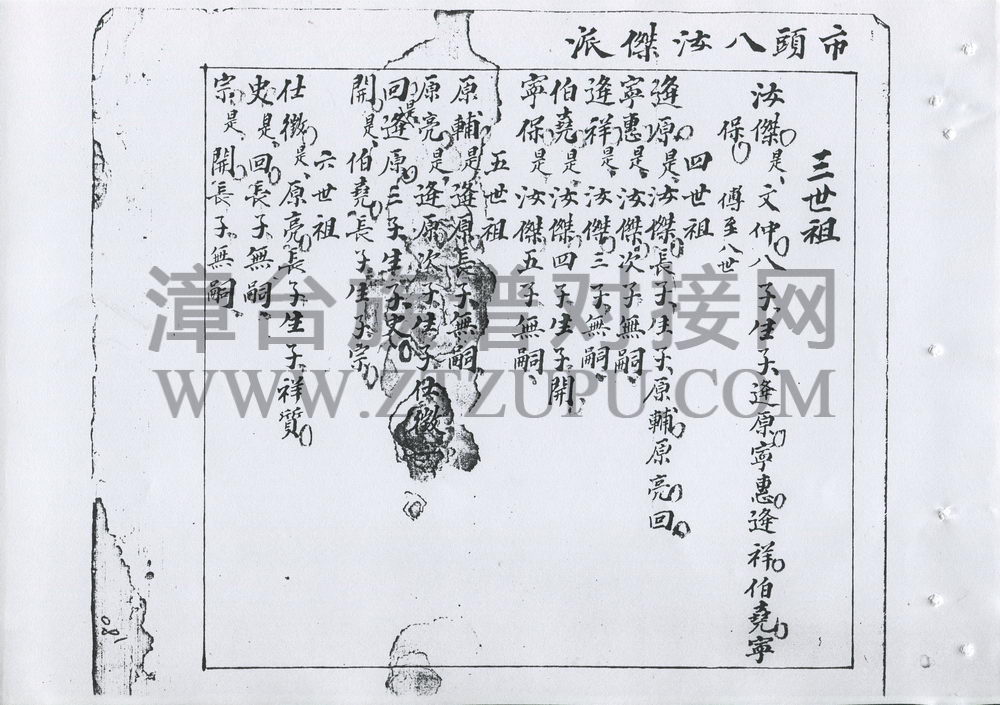 市頭八汝傑派
三世祖
汝傑是文仲八子生子逢原寧惠逢祥伯堯寧
保 傳至八世
四世祖
逢原是汝傑長子生子原輔原亮回
寧惠是汝傑次子無嗣
逢祥是汝傑三子無嗣
伯堯是汝傑四子生子開
寧保是汝傑五子無嗣
五世祖
原輔是逢源長子無嗣
原亮是逢原次子生子仕徵
回是逢原三子生子史
開是伯堯長子生子宗
六世祖
仕徵是原亮長子生子祥質
史是回長子無嗣
宗是開長子無嗣
漳台族谱对接网
WWW.ZTZUPU.COM